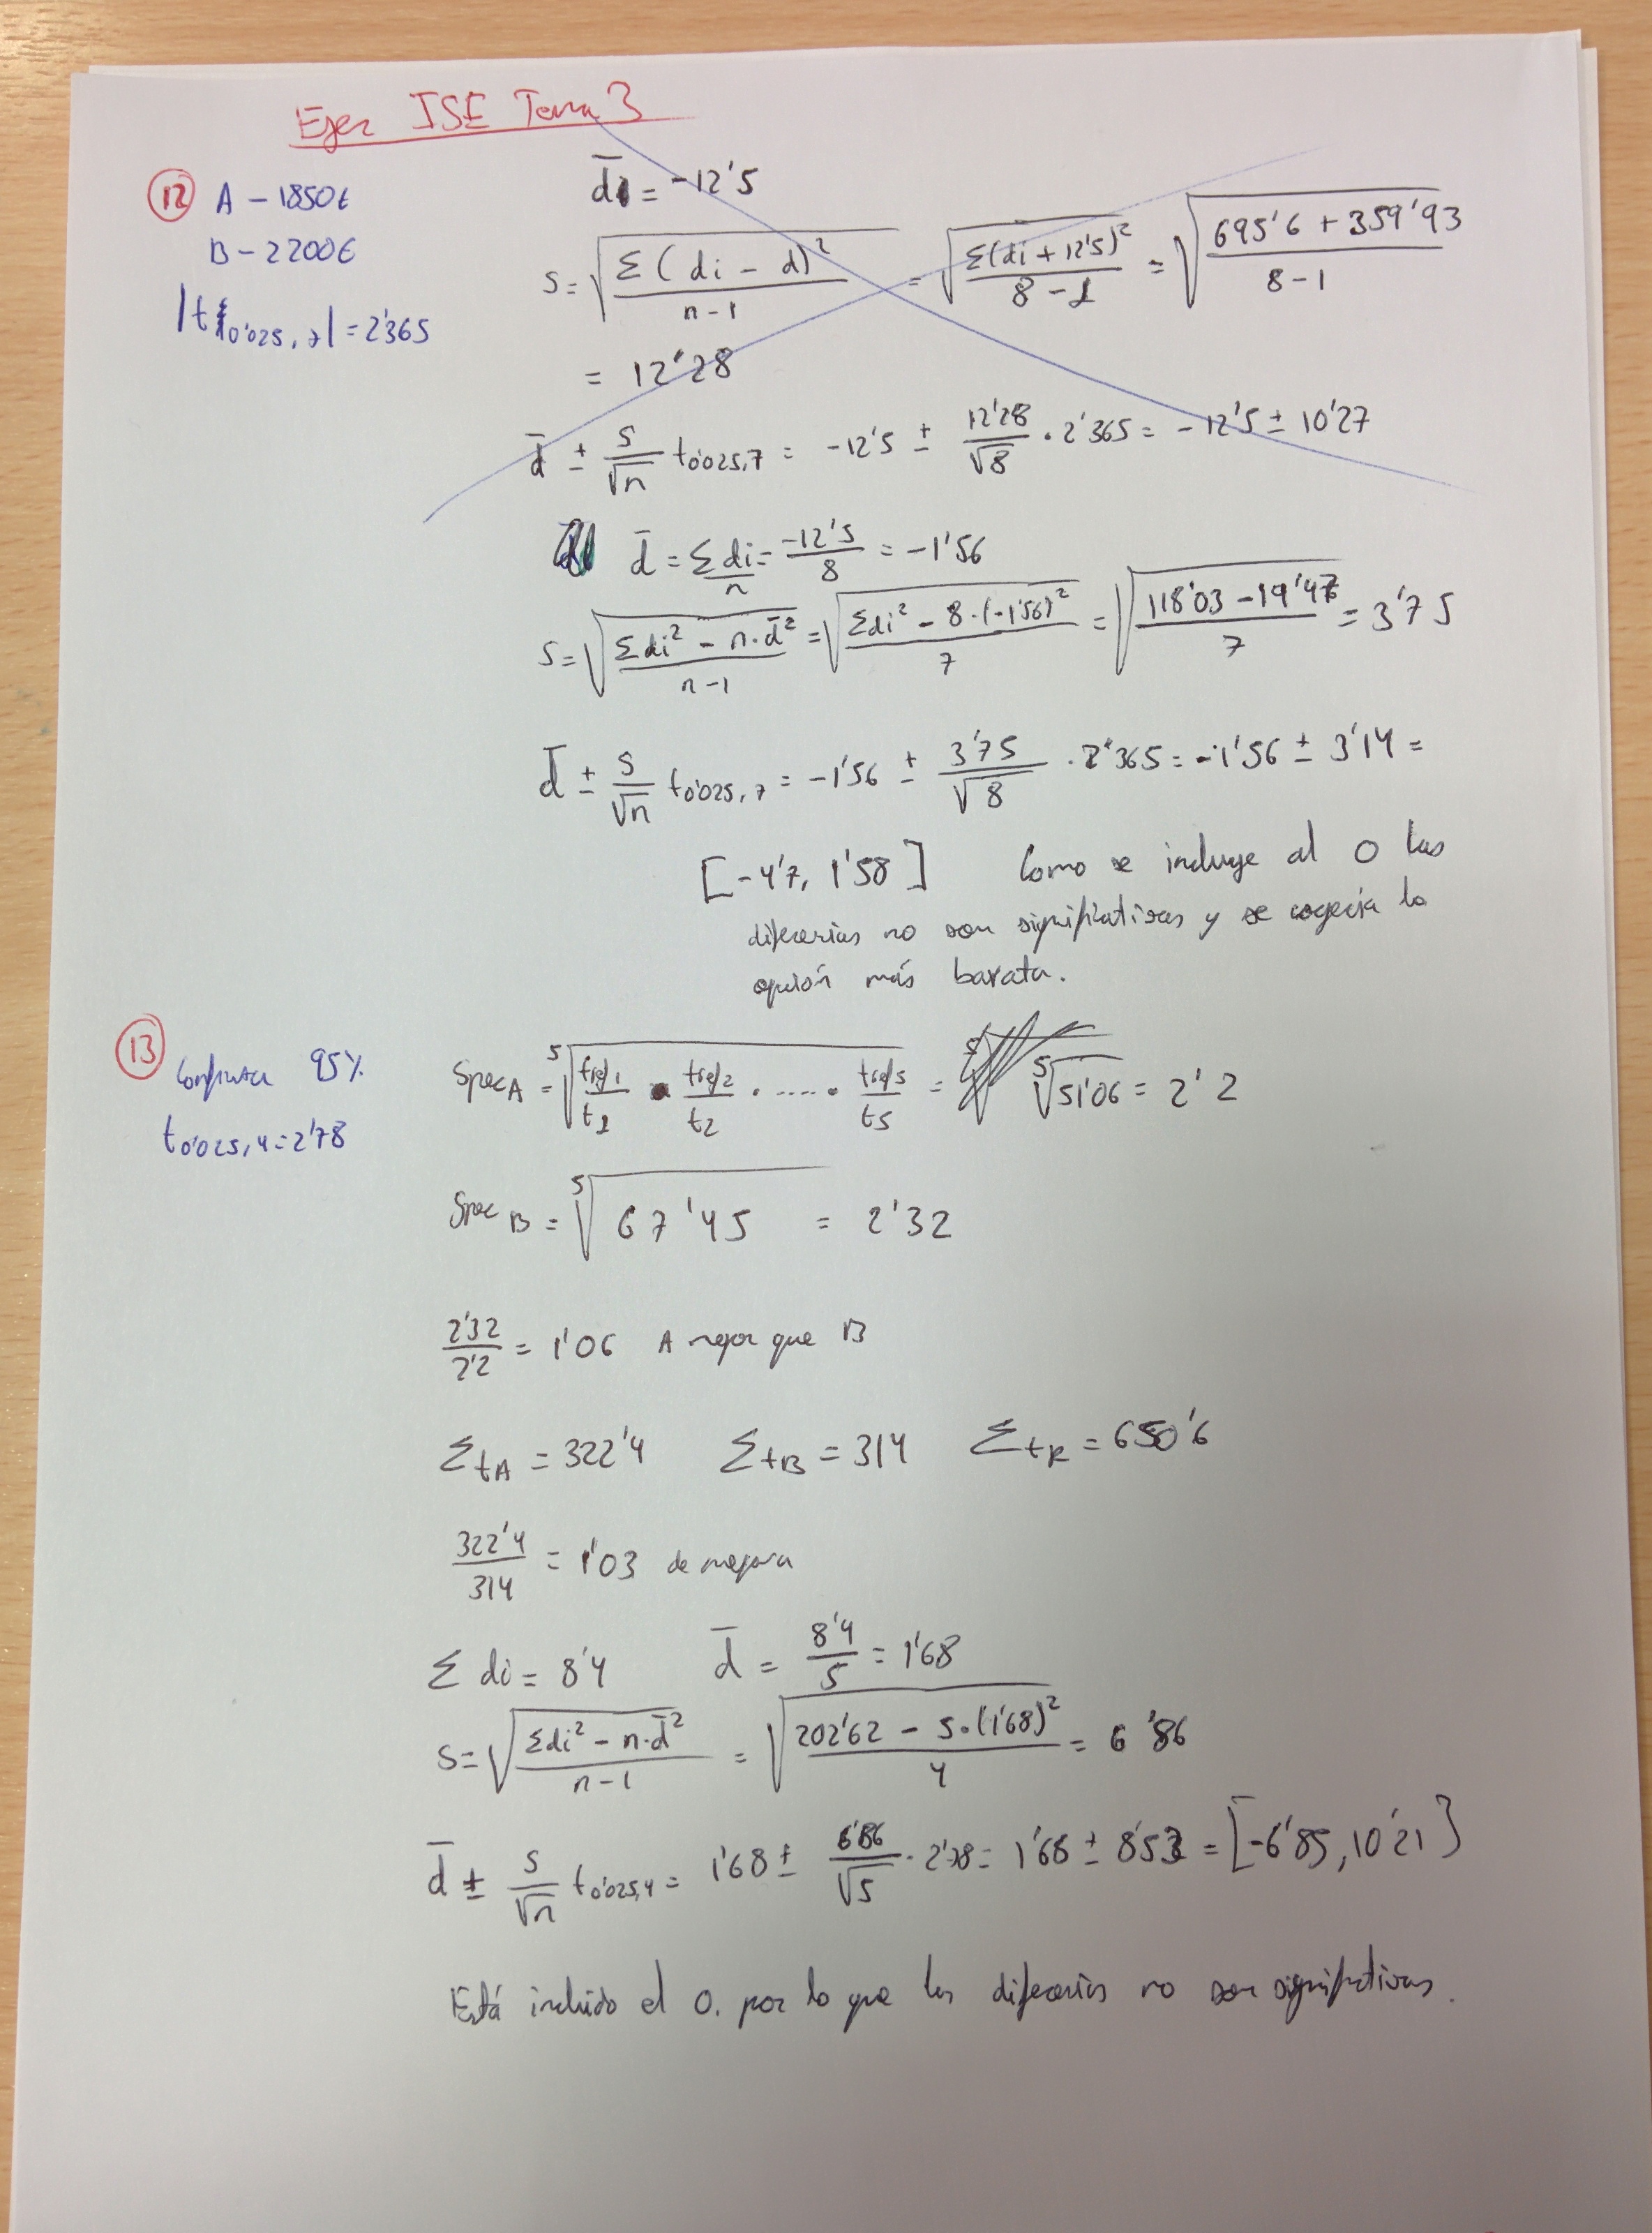 Ejer ISE Tema 3
12 A - 1850€
B - 2200€
|t 0'025, 7| = 2'365
d̄i = -12'5
s = √(Σ(di - d)² / n-1) = √(Σ(di + 12'5)² / 8-1) = √(695'6 + 359'93 / 8-1)
= 12'28
d̄ ± s/√n t0'025,7 = -12'5 ± 12'28/√8 · 2'365 = -12'5 ± 10'27
d̄ = Σdi/n = -12'5/8 = -1'56
s = √(Σdi² - n·d̄² / n-1) = √(Σdi² - 8·(-1'56)² / 7) = √(118'03 - 19'47 / 7) = 3'75
d̄ ± s/√n t0'025,7 = -1'56 ± 3'75/√8 · 2'365 = -1'56 ± 3'14 =
[-4'7, 1'58] Como se incluye al 0 las
diferencias no son significativas y se cogería la
opción más barata.
13 Confianza 95%
t0'025,4 = 2'78
SpecA = ⁵√(tref1/t1 · tref2/t2 · ..... · tref5/t5) = ⁵√51'06 = 2'2
Spec B = ⁵√67'45 = 2'32
2'32/2'2 = 1'06 A mejor que B
ΣtA = 322'4 ΣtB = 314 ΣtR = 650'6
322'4/314 = 1'03 de mejora
Σdi = 8'4 d̄ = 8'4/5 = 1'68
s = √(Σdi² - n·d̄² / n-1) = √(202'62 - 5·(1'68)² / 4) = 6'86
d̄ ± s/√n t0'025,4 = 1'68 ± 6'86/√5 · 2'78 = 1'68 ± 8'53 = [-6'85, 10'21]
Está incluido el 0, por lo que las diferencias no son significativas.